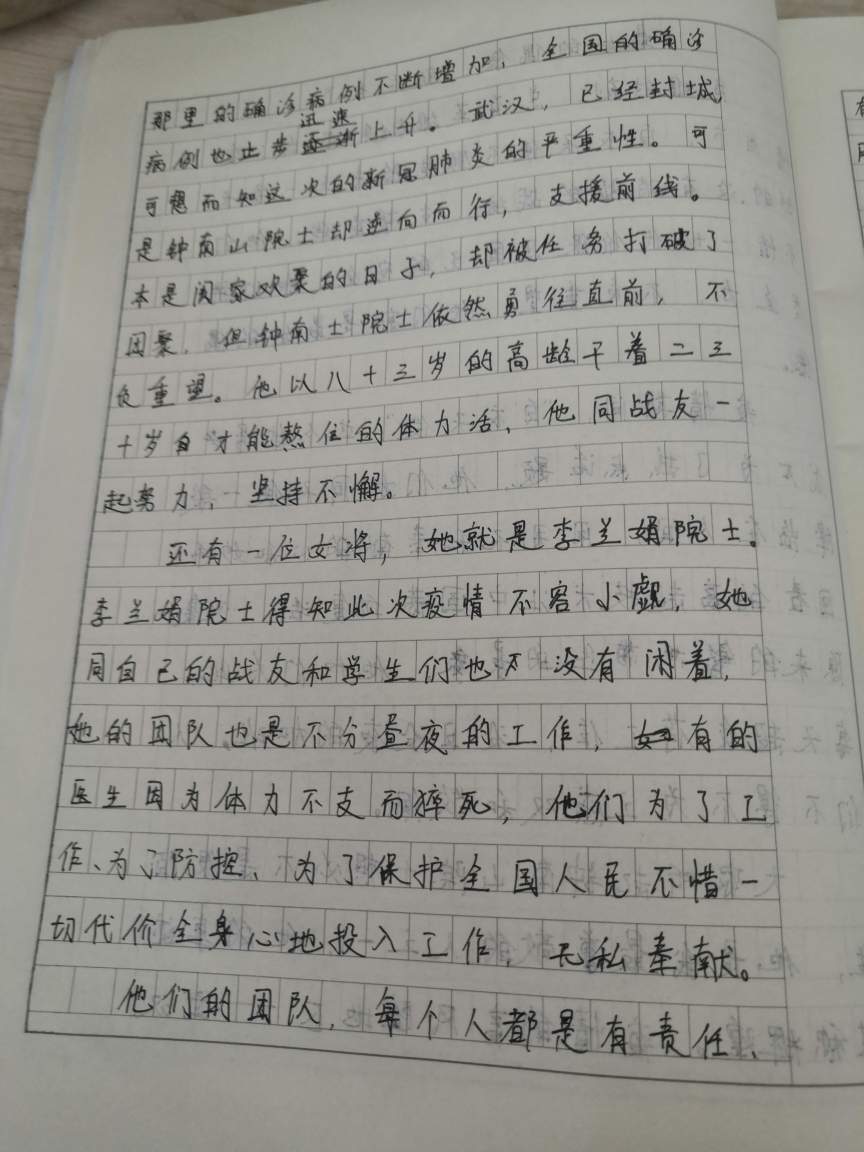 那里的确诊病例不断增加，全国的确诊
迅速
病例也止步逐渐上升。武汉，已经封城，
可想而知这次的新冠肺炎的严重性。可
是钟南山院士却逆向而行，支援前线。
本是阅家欢聚的日子，却被任务打破了
团聚，但钟南士院士依然勇往直前，不
负重望。他以八十三岁的高龄干着二三
十岁才能熬住的体力活，他同战友一
起努力，坚持不懈。
还有一位女将，她就是李兰娟院士。
李兰娟院士得知此次疫情不容小觑，她
同自己的战友和学生们也不没有闲着，
她的团队也是不分昼夜的工作，有的
医生因为体力不支而猝死，他们为了工
作、为了防控、为了保护全国人民不惜一
切代价全身心地投入工作，无私奉献。
他们的团队，每个人都是有责任、